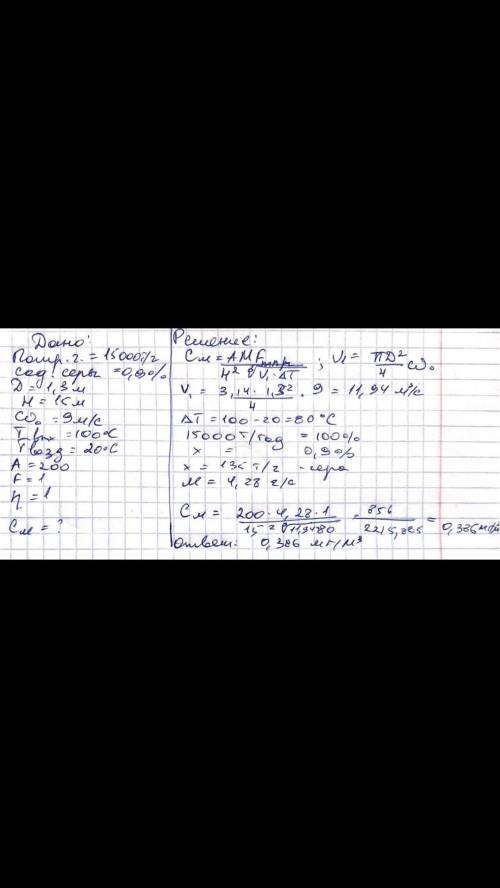 Дано:
Потр. т. = 15000 т/г
сод. серы = 0,9%
D = 1,3 м
H = 15 м
ω₀ = 9 м/с
T вых = 100°C
T возд = 20°C
A = 200
F = 1
η = 1
См = ?
Решение:
См = AMF / H² ∛V₁·ΔT ; V₁ = πD²/4 ω₀
V₁ = 3,14 · 1,3² / 4 · 9 = 11,94 м³/с
ΔT = 100 - 20 = 80°C
15000 т/год = 100%
x = 0,9%
x = 135 т/г - сера
M = 4,28 г/с
См = 200 · 4,28 · 1 / 15² ∛11,94·80 = 856 / 2215,885 = 0,386 мг/м³
Ответ: 0,386 мг/м³